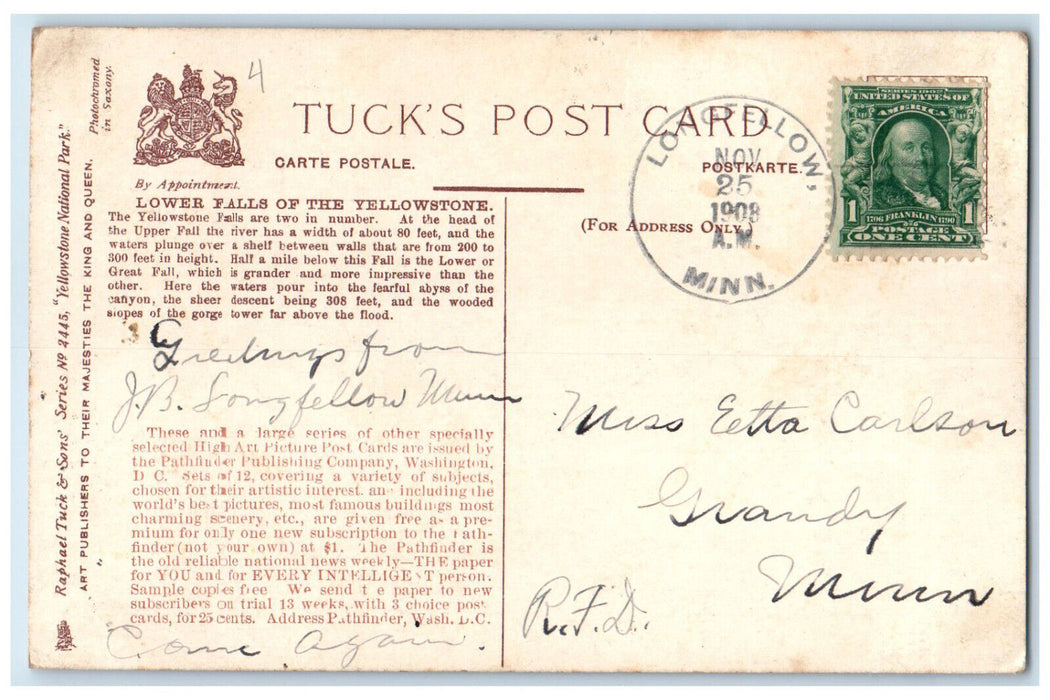 4
TUCK'S POST CARD
CARTE POSTALE.
POSTKARTE.
By Appointment.
(For Address Only.)
LOWER FALLS OF THE YELLOWSTONE.
The Yellowstone Falls are two in number. At the head of
the Upper Fall the river has a width of about 80 feet, and the
waters plunge over a shelf between walls that are from 200 to
300 feet in height. Half a mile below this Fall is the Lower or
Great Fall, which is grander and more impressive than the
other. Here the waters pour into the fearful abyss of the
cañyon, the sheer descent being 308 feet, and the wooded
slopes of the gorge tower far above the flood.
Greetings from
J.B. Longfellow Minn
These and a large series of other specially
selected High Art Picture Post Cards are issued by
the Pathfinder Publishing Company, Washington,
D C. Sets of 12, covering a variety of subjects,
chosen for their artistic interest. and including the
world's best pictures, most famous buildings most
charming scenery, etc., are given free as a pre-
mium for only one new subscription to the Path-
finder (not your own) at $1. The Pathfinder is
the old reliable national news weekly—THE paper
for YOU and for EVERY INTELLIGENT person.
Sample copies free We send the paper to new
subscribers on trial 13 weeks, with 3 choice post
cards, for 25 cents. Address Pathfinder, Wash. D.C.
Come again.
Raphael Tuck & Sons' Series Nº 2445, "Yellowstone National Park."
ART PUBLISHERS TO THEIR MAJESTIES THE KING AND QUEEN.
Photochromed
in Saxony.
LONGFELLOW,
NOV
25
1908
A.M.
MINN.
SERIES 1902
UNITED STATES OF
AMERICA
1706 FRANKLIN 1790
1 POSTAGE 1
ONE CENT
Miss Etta Carlson
Grandy
Minn
R.F.D.